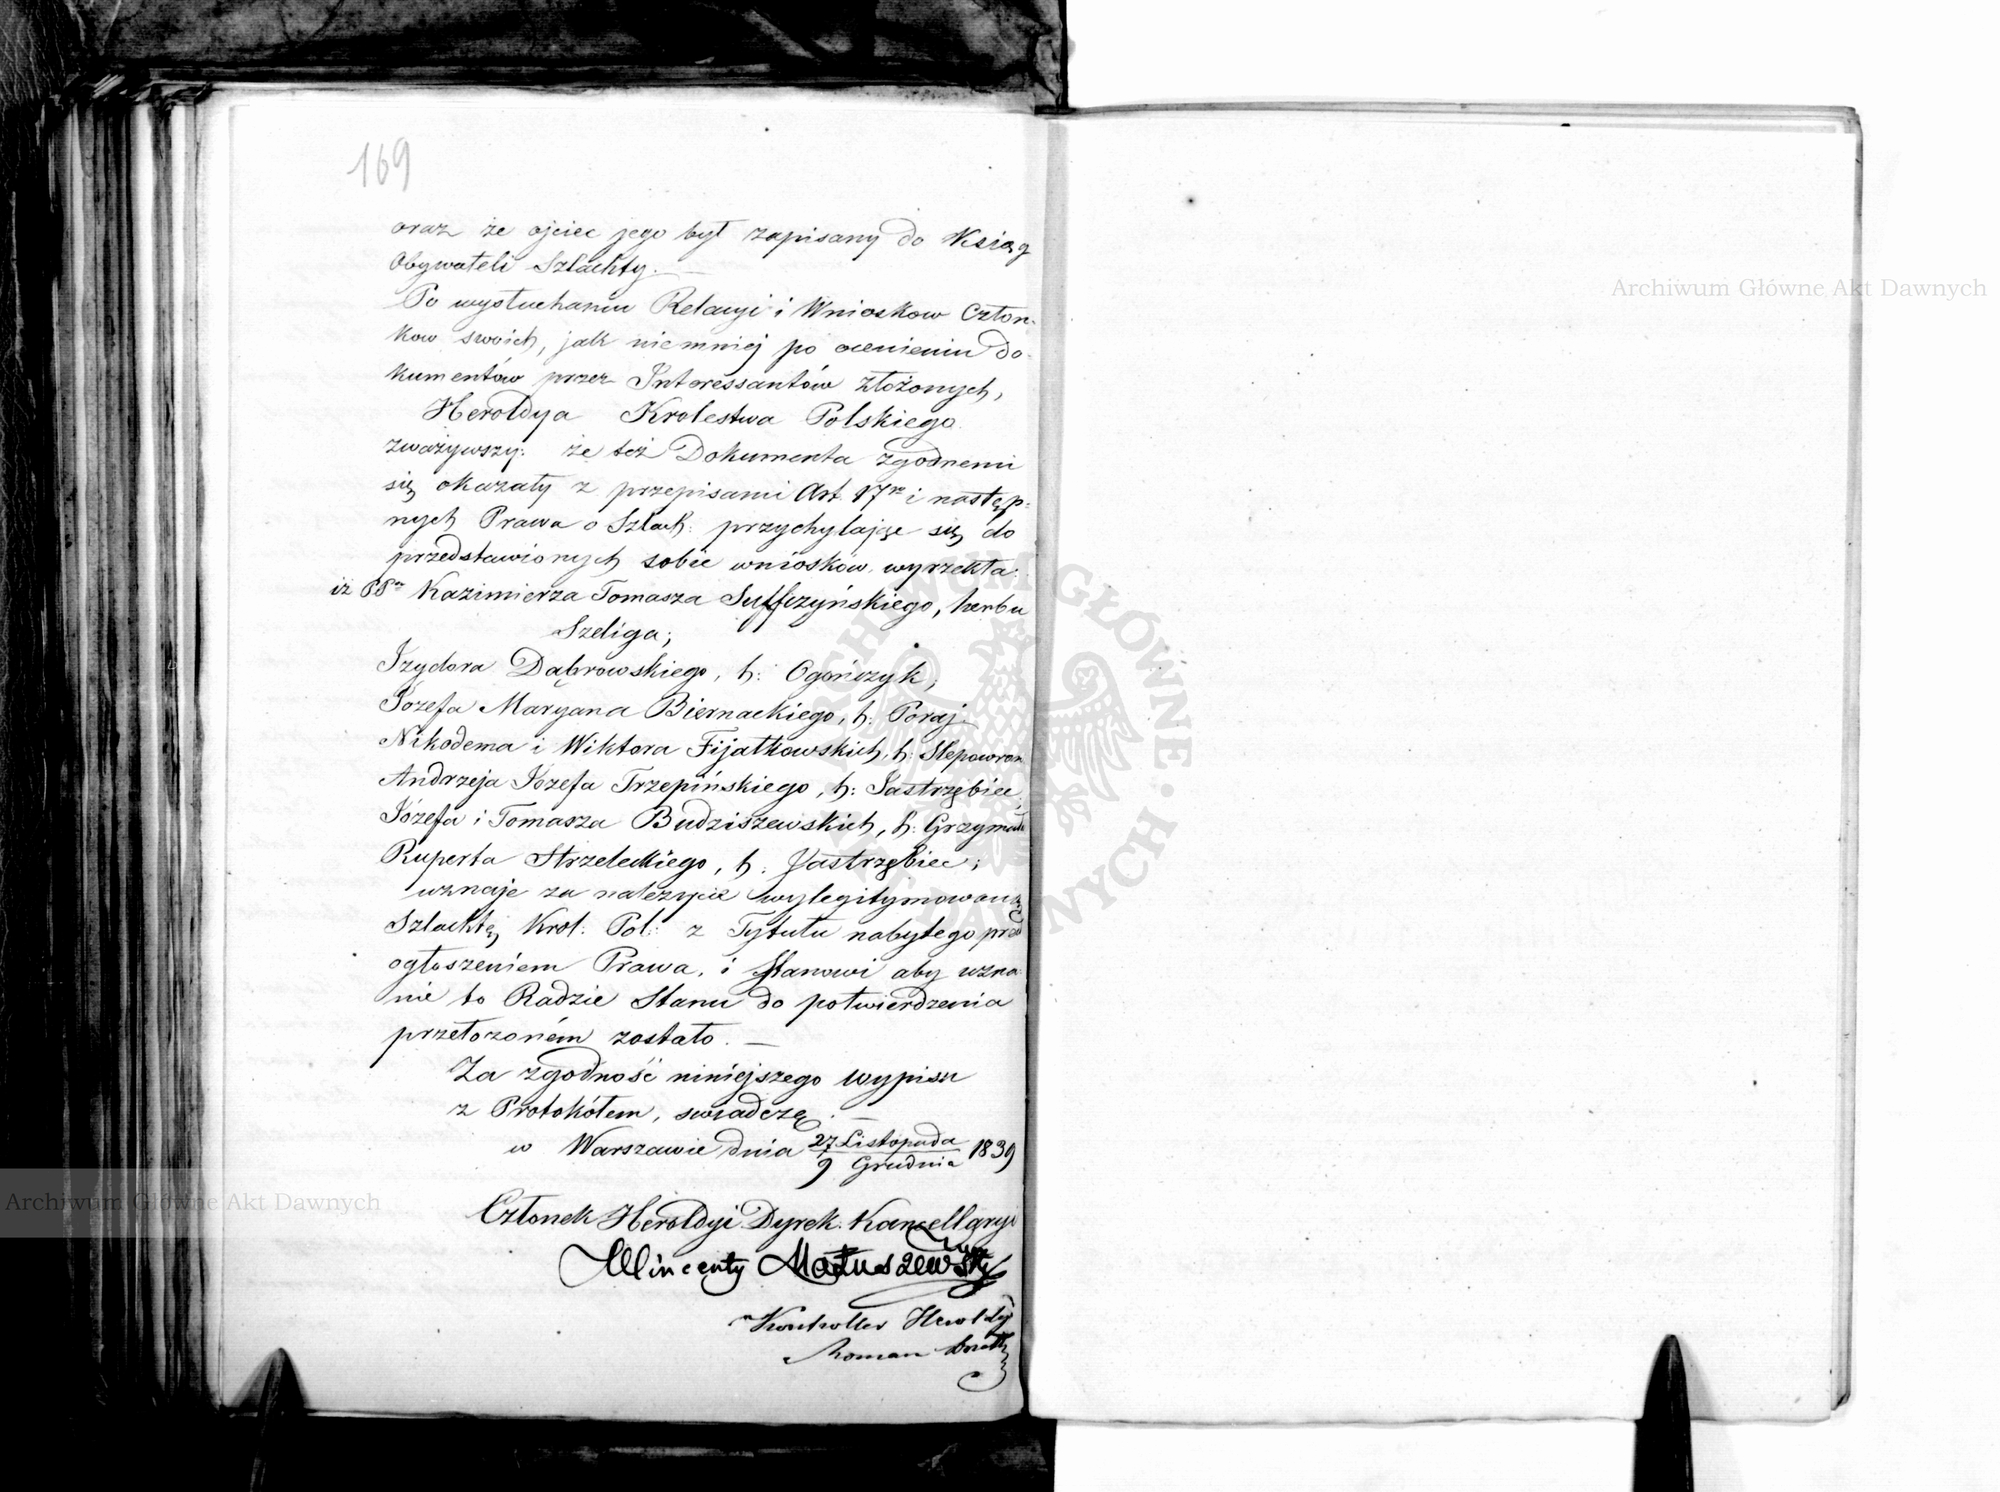 169
oraz że ojciec jego był zapisany do Ksiąg
Obywateli Szlachty. —
Po wysłuchaniu Relacyi i Wniosków Człon-
ków swoich, jak niemniej po ocenieniu Do-
kumentów przez Interessantów złożonych,
Heroldya Królestwa Polskiego
zważywszy: że też Dokumenta zgodnemi
się okazały z przepisami Art. 17 i następ-
nych Prawa o Szlach: przychylając się do
przedstawionych sobie wniosków wyrzekła:
iż Kazimierza Tomasza Suffczyńskiego, herbu
Szeliga;
Izydora Dąbrowskiego, h: Ogończyk;
Józefa Maryana Biernackiego, h: Poraj
Nikodema i Wiktora Fijałkowskich, h: Slepowron
Andrzeja Józefa Trzepińskiego, h: Jastrzębiec;
Józefa i Tomasza Budziszewskich, h: Grzymała
Ruperta Strzeleckiego, h: Jastrzębiec;
uznaje za należycie wylegitymowaną
Szlachtę Król: Pol: z Tytułu nabytego przed
ogłoszeniem Prawa, i Stanowi aby uzna-
nie to Radzie Stanu do potwierdzenia
przełożoném zostało. —
Za zgodność niniejszego wypisu
z Protokółem, swiadczę. —
w Warszawie dnia 27 Listopada / 9 Grudnia 1839
Członek Heroldyi Dyrek. Kancellaryi
Wincenty Matuszewski
Kontroller Heroldyi
Roman
Archiwum Główne Akt Dawnych
Archiwum Główne Akt Dawnych
ARCHIWUM GŁÓWNE AKT DAWNYCH